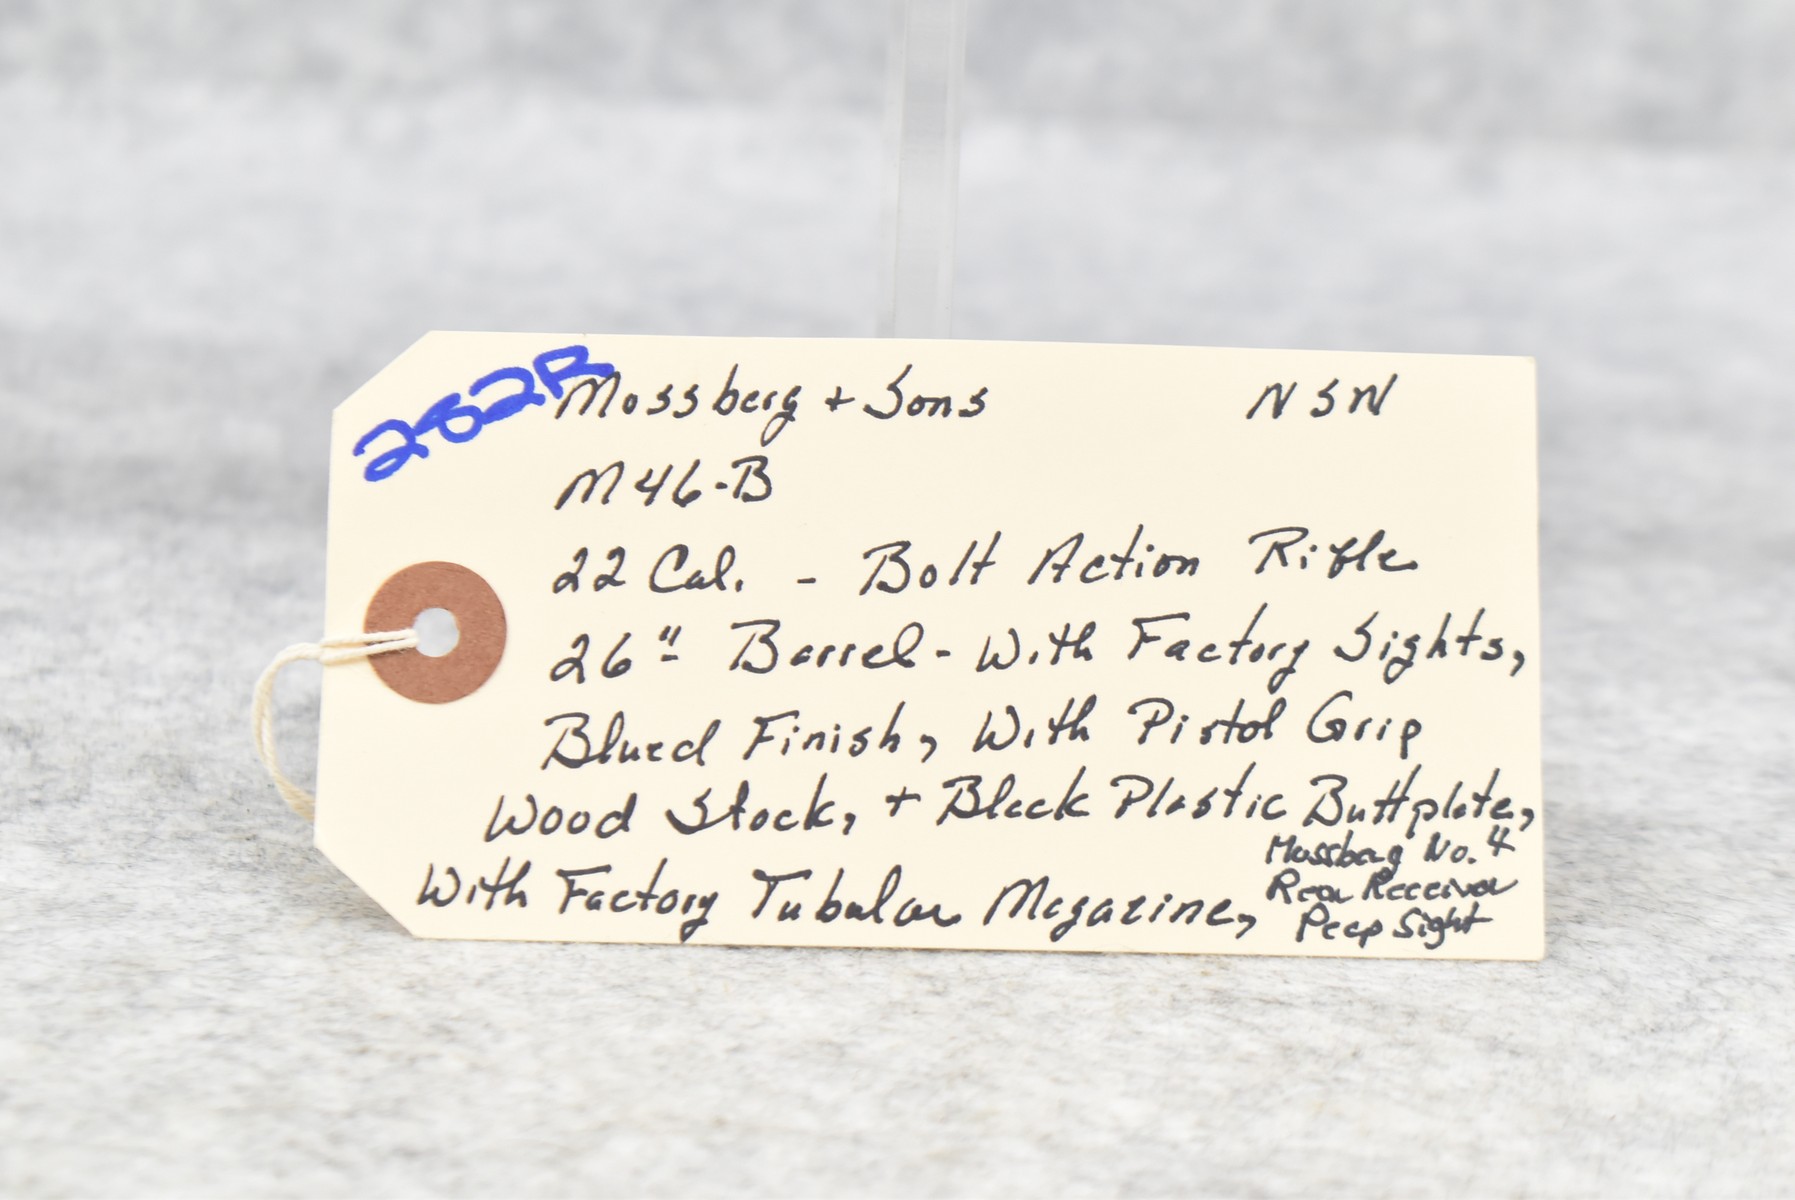 282R
Mossberg + Sons NSN
M46-B
22 Cal. - Bolt Action Rifle
26" - Barrel - With Factory Sights,
Blued Finish, With Pistol Grip
Wood Stock, + Black Plastic Buttplate,
With Factory Tubular Magazine,
Mossberg No. 4
Rear Receiver
Peep Sight